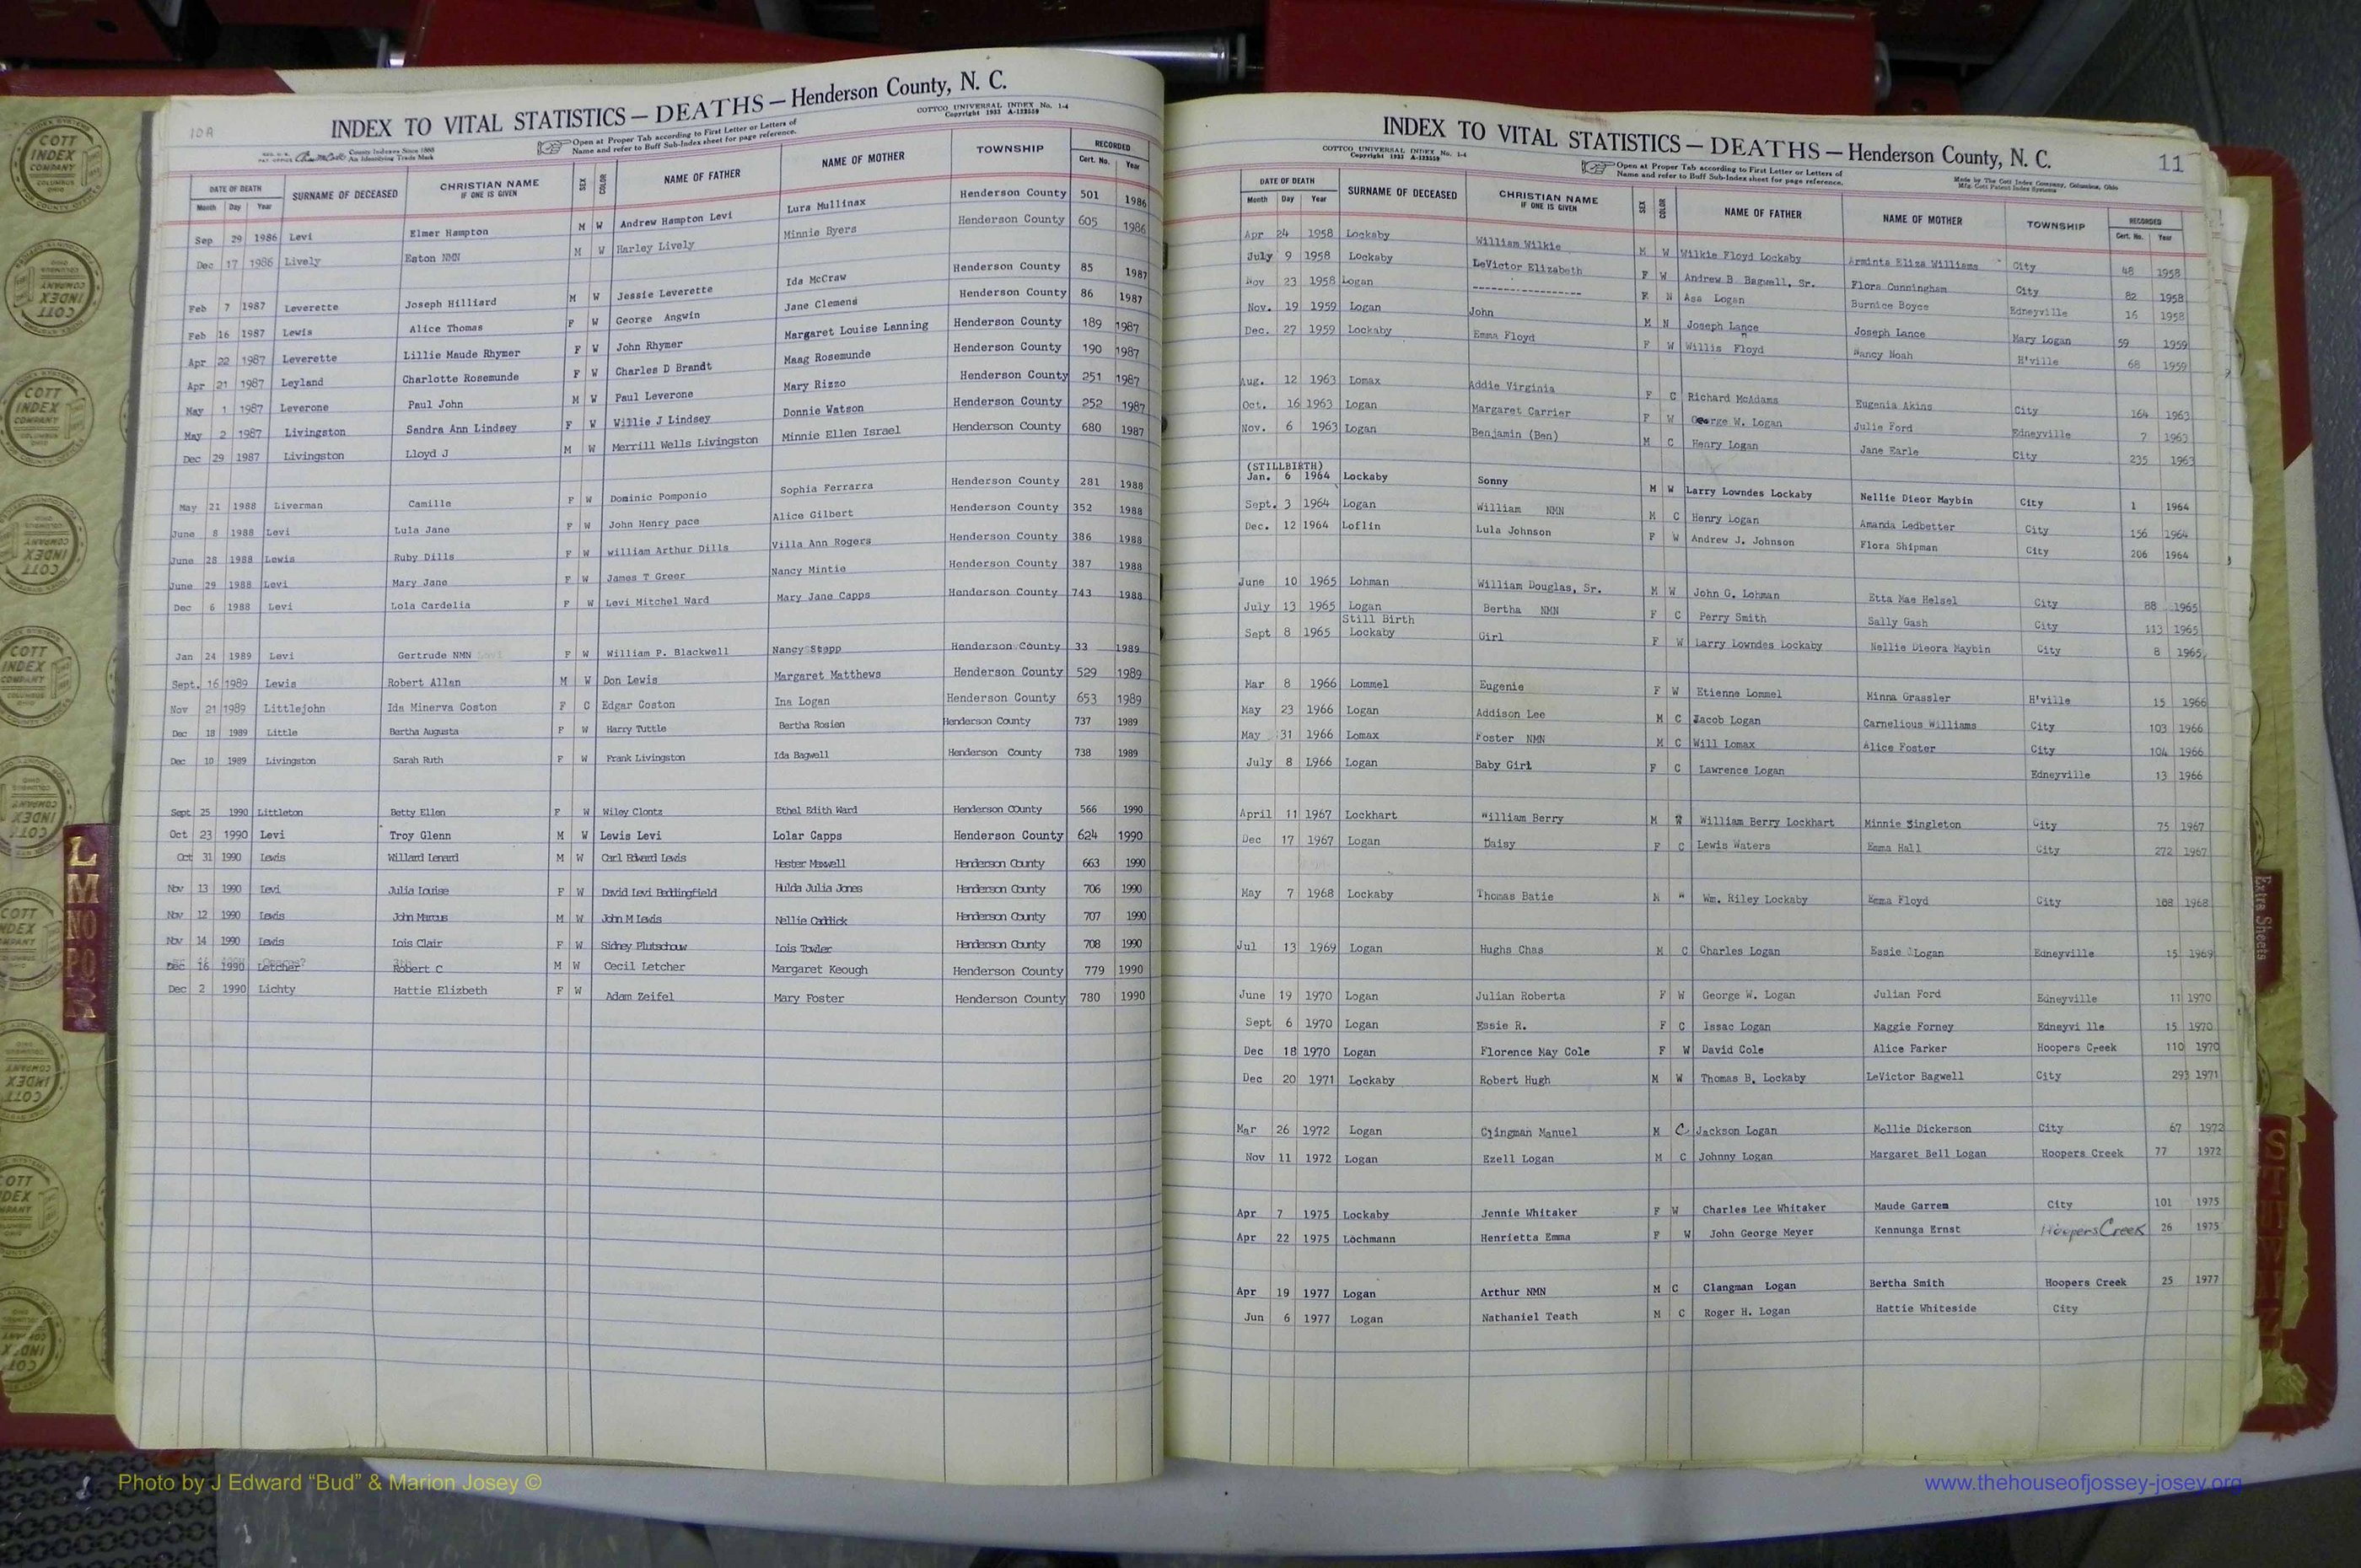 10A
INDEX TO VITAL STATISTICS — DEATHS — Henderson County, N. C.
COTTCO UNIVERSAL INDEX No. 1-4
Copyright 1933 A-123559
County Indexes Since 1888
An Identifying Trade Mark
Open at Proper Tab according to First Letter or Letters of
Name and refer to Buff Sub-Index sheet for page reference.
DATE OF DEATH SURNAME OF DECEASED CHRISTIAN NAME IF ONE IS GIVEN SEX COLOR NAME OF FATHER NAME OF MOTHER TOWNSHIP RECORDED
Month Day Year Cert. No. Year
Sep 29 1986 Levi Elmer Hampton M W Andrew Hampton Levi Lura Mullinax Henderson County 501 1986
Dec 17 1986 Lively Eston NMN M W Harley Lively Minnie Byers Henderson County 605 1986
Feb 7 1987 Leverette Joseph Hilliard M W Jessie Leverette Ida McCraw Henderson County 85 1987
Feb 16 1987 Lewis Alice Thomas F W George Angwin Jane Clemens Henderson County 86 1987
Apr 22 1987 Leverette Lillie Maude Rhymer F W John Rhymer Margaret Louise Lanning Henderson County 189 1987
Apr 21 1987 Leyland Charlotte Rosemunde F W Charles D Brandt Maag Rosemunde Henderson County 190 1987
May 1 1987 Leverone Paul John M W Paul Leverone Mary Rizzo Henderson County 251 1987
May 2 1987 Livingston Sandra Ann Lindsey F W Willie J Lindsey Donnie Watson Henderson County 252 1987
Dec 29 1987 Livingston Lloyd J M W Merrill Wells Livingston Minnie Ellen Israel Henderson County 680 1987
May 21 1988 Liverman Camille F W Dominic Pomponio Sophia Ferrarra Henderson County 281 1988
June 8 1988 Levi Lula Jane F W John Henry pace Alice Gilbert Henderson County 352 1988
June 28 1988 Lewis Ruby Dills F W william Arthur Dills Villa Ann Rogers Henderson County 386 1988
June 29 1988 Levi Mary Jane F W James T Greer Nancy Mintie Henderson County 387 1988
Dec 6 1988 Levi Lola Cardelia F W Levi Mitchel Ward Mary Jane Capps Henderson County 743 1988
Jan 24 1989 Levi Gertrude NMN F W William P. Blackwell Nancy Stepp Henderson County 33 1989
Sept. 16 1989 Lewis Robert Allan M W Don Lewis Margaret Matthews Henderson County 529 1989
Nov 21 1989 Littlejohn Ida Minerva Coston F C Edgar Coston Ina Logan Henderson County 653 1989
Dec 18 1989 Little Bertha Augusta F W Harry Tuttle Bertha Rosien Henderson County 737 1989
Dec 10 1989 Livingston Sarah Ruth F W Frank Livingston Ida Bagwell Henderson County 738 1989
Sept 25 1990 Littleton Betty Ellen F W Wiley Clontz Ethel Edith Ward Henderson COunty 566 1990
Oct 23 1990 Levi Troy Glenn M W Lewis Levi Lolar Capps Henderson County 624 1990
Oct 31 1990 Lewis Willard Lenard M W Carl Edward Lewis Hester Maxwell Henderson County 663 1990
Nov 13 1990 Levi Julia Louise F W David Levi Beddingfield Hulda Julia Jones Henderson County 706 1990
Nov 12 1990 Lewis John Marcus M W John M Lewis Nellie Caddick Henderson County 707 1990
Nov 14 1990 Lewis Lois Clair F W Sidney Plutschouw Lois Towler Henderson County 708 1990
Dec 16 1990 Letcher Robert C M W Cecil Letcher Margaret Keough Henderson County 779 1990
Dec 2 1990 Lichty Hattie Elizbeth F W Adam Zeifel Mary Foster Henderson County 780 1990
INDEX TO VITAL STATISTICS — DEATHS — Henderson County, N. C. 11
COTTCO UNIVERSAL INDEX No. 1-4
Copyright 1933 A-123559
Open at Proper Tab according to First Letter or Letters of
Name and refer to Buff Sub-Index sheet for page reference.
Made by The Cott Index Company, Columbus, Ohio
Mfg. Cott Patent Index Systems
DATE OF DEATH SURNAME OF DECEASED CHRISTIAN NAME IF ONE IS GIVEN SEX COLOR NAME OF FATHER NAME OF MOTHER TOWNSHIP RECORDED
Month Day Year Cert. No. Year
Apr 24 1958 Lockaby William Wilkie M W Wilkie Floyd Lockaby Arminta Eliza Williams City 48 1958
July 9 1958 Lockaby LeVictor Elizabeth F W Andrew B. Bagwell, Sr. Flora Cunningham City 82 1958
Nov 23 1958 Logan ----------------- F N Asa Logan Burnice Boyce Edneyville 16 1958
Nov. 19 1959 Logan John M N Joseph Lance Joseph Lance Mary Logan 59 1959
Dec. 27 1959 Lockaby Emma Floyd F W Willis Floyd Nancy Noah H'ville 68 1959
Aug. 12 1963 Lomax Addie Virginia F C Richard McAdams Eugenia Akins City 164 1963
Oct. 16 1963 Logan Margaret Carrier F W George W. Logan Julie Ford Edneyville 7 1963
Nov. 6 1963 Logan Benjamin (Ben) M C Henry Logan Jane Earle City 235 1963
(STILLBIRTH)
Jan. 6 1964 Lockaby Sonny M W Larry Lowndes Lockaby Nellie Dieor Maybin City 1 1964
Sept. 3 1964 Logan William NMN M C Henry Logan Amanda Ledbetter City 156 1964
Dec. 12 1964 Loflin Lula Johnson F W Andrew J. Johnson Flora Shipman City 206 1964
June 10 1965 Lohman William Douglas, Sr. M W John G. Lohman Etta Mae Helsel City 88 1965
July 13 1965 Logan Bertha NMN F C Perry Smith Sally Gash City 113 1965
Still Birth
Sept 8 1965 Lockaby Girl F W Larry Lowndes Lockaby Nellie Dieora Maybin City 8 1965
Mar 8 1966 Lommel Eugenie F W Etienne Lommel Minna Grassler H'ville 15 1966
May 23 1966 Logan Addison Lee M C Jacob Logan Carnelious Williams City 103 1966
May 31 1966 Lomax Foster NMN M C Will Lomax Alice Foster City 104 1966
July 8 L966 Logan Baby Girl F C Lawrence Logan Edneyville 13 1966
April 11 1967 Lockhart William Berry M W William Berry Lockhart Minnie Singleton City 75 1967
Dec 17 1967 Logan Daisy F C Lewis Waters Emma Hall City 272 1967
May 7 1968 Lockaby Thomas Batie M " Wm. Riley Lockaby Emma Floyd City 108 1968
Jul 13 1969 Logan Hughs Chas M C Charles Logan Essie Logan Edneyville 15 1969
June 19 1970 Logan Julian Roberta F W George W. Logan Julian Ford Edneyville 11 1970
Sept 6 1970 Logan Essie R. F C Issac Logan Maggie Forney Edneyvi lle 15 1970
Dec 18 1970 Logan Florence May Cole F W David Cole Alice Parker Hoopers Creek 110 1970
Dec 20 1971 Lockaby Robert Hugh M W Thomas B. Lockaby LeVictor Bagwell City 293 1971
Mar 26 1972 Logan Clingman Manuel M C Jackson Logan Mollie Dickerson City 67 1972
Nov 11 1972 Logan Ezell Logan M C Johnny Logan Margaret Bell Logan Hoopers Creek 77 1972
Apr 7 1975 Lockaby Jennie Whitaker F W Charles Lee Whitaker Maude Garren City 101 1975
Apr 22 1975 Lochmann Henrietta Emma F W John George Meyer Kennunga Ernst Hoopers Creek 26 1975
Apr 19 1977 Logan Arthur NMN M C Clangman Logan Bertha Smith Hoopers Creek 25 1977
Jun 6 1977 Logan Nathaniel Teath M C Roger H. Logan Hattie Whiteside City
COTT INDEX COMPANY COLUMBUS OHIO
L
M
NO
PQ
R
Extra Sheets
Photo by J Edward “Bud” & Marion Josey ©
www.thehouseofjossey-josey.org